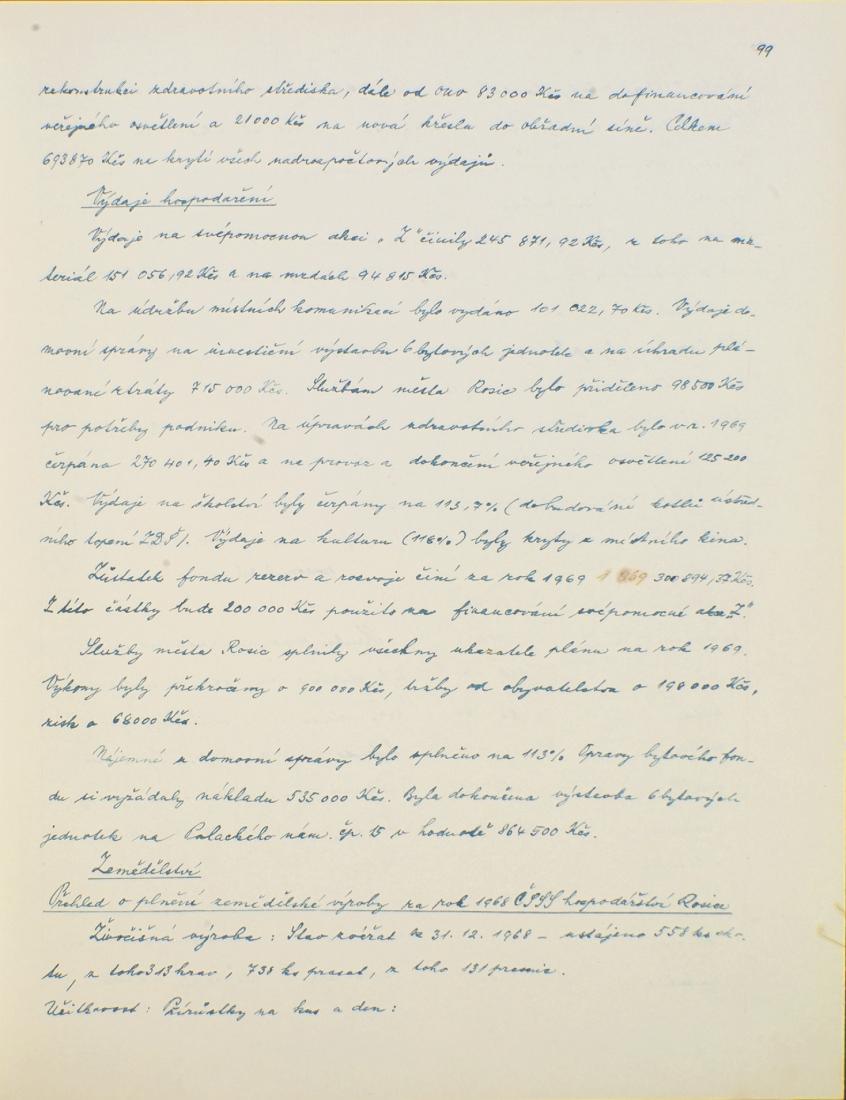 99
rekonstrukci zdravotního střediska, dále od ONV 83 000 Kčs na dofinancování
veřejného osvětlení a 21 000 Kčs na nová křesla do obřadní síně. Celkem
693 870 Kčs na krytí všech nadrozpočtových výdajů.
Výdaje hospodaření
Výdaje na svépomocnou akci „Z" činily 245 871,92 Kčs, z toho na ma-
teriál 151 056,92 Kčs a na mzdách 94 815 Kčs.
Na údržbu místních komunikací bylo vydáno 101 022,70 Kčs. Výdaje do-
movní správy na investiční výstavbu 6 bytových jednotek a na úhradu plá-
nované ztráty 715 000 Kčs. Službám města Rosic bylo přiděleno 98 500 Kčs
pro potřeby podniku. Na úpravách zdravotního střediska bylo v r. 1969
čerpáno 270 401,40 Kčs a na provoz a dokončení veřejného osvětlení 125 200
Kčs. Výdaje na školství byly čerpány na 113,7% (dobudování kotlů ústřed-
ního topení ZDŠ). Výdaje na kulturu (116%) byly kryty z místního kina.
Zůstatek fondu rezerv a rozvoje činí za rok 1969 300 894,37 Kčs.
Z této částky bude 200 000 Kčs použito na financování svépomocné akce „Z".
Služby města Rosic splnily všechny ukazatele plánu na rok 1969.
Výkony byly překročeny o 900 000 Kčs, tržby od obyvatelstva o 198 000 Kčs,
zisk o 68 000 Kčs.
Nájemné z domovní správy bylo splněno na 113% Opravy bytového fon-
du si vyžádaly nákladu 535 000 Kčs. Byla dokončena výstavba 6 bytových
jednotek na Palackého nám. čp. 15 v hodnotě 864 500 Kčs.
Zemědělství
Přehled o plnění zemědělské výroby za rok 1968 ČSSS hospodářství Rosice
Živočišná výroba: Stav zvířat k 31. 12. 1968 – ustájeno 558 ks sko-
tu, z toho 313 krav, 738 ks prasat, z toho 131 prasnic.
Užitkovost: Přírůstky na kus a den: